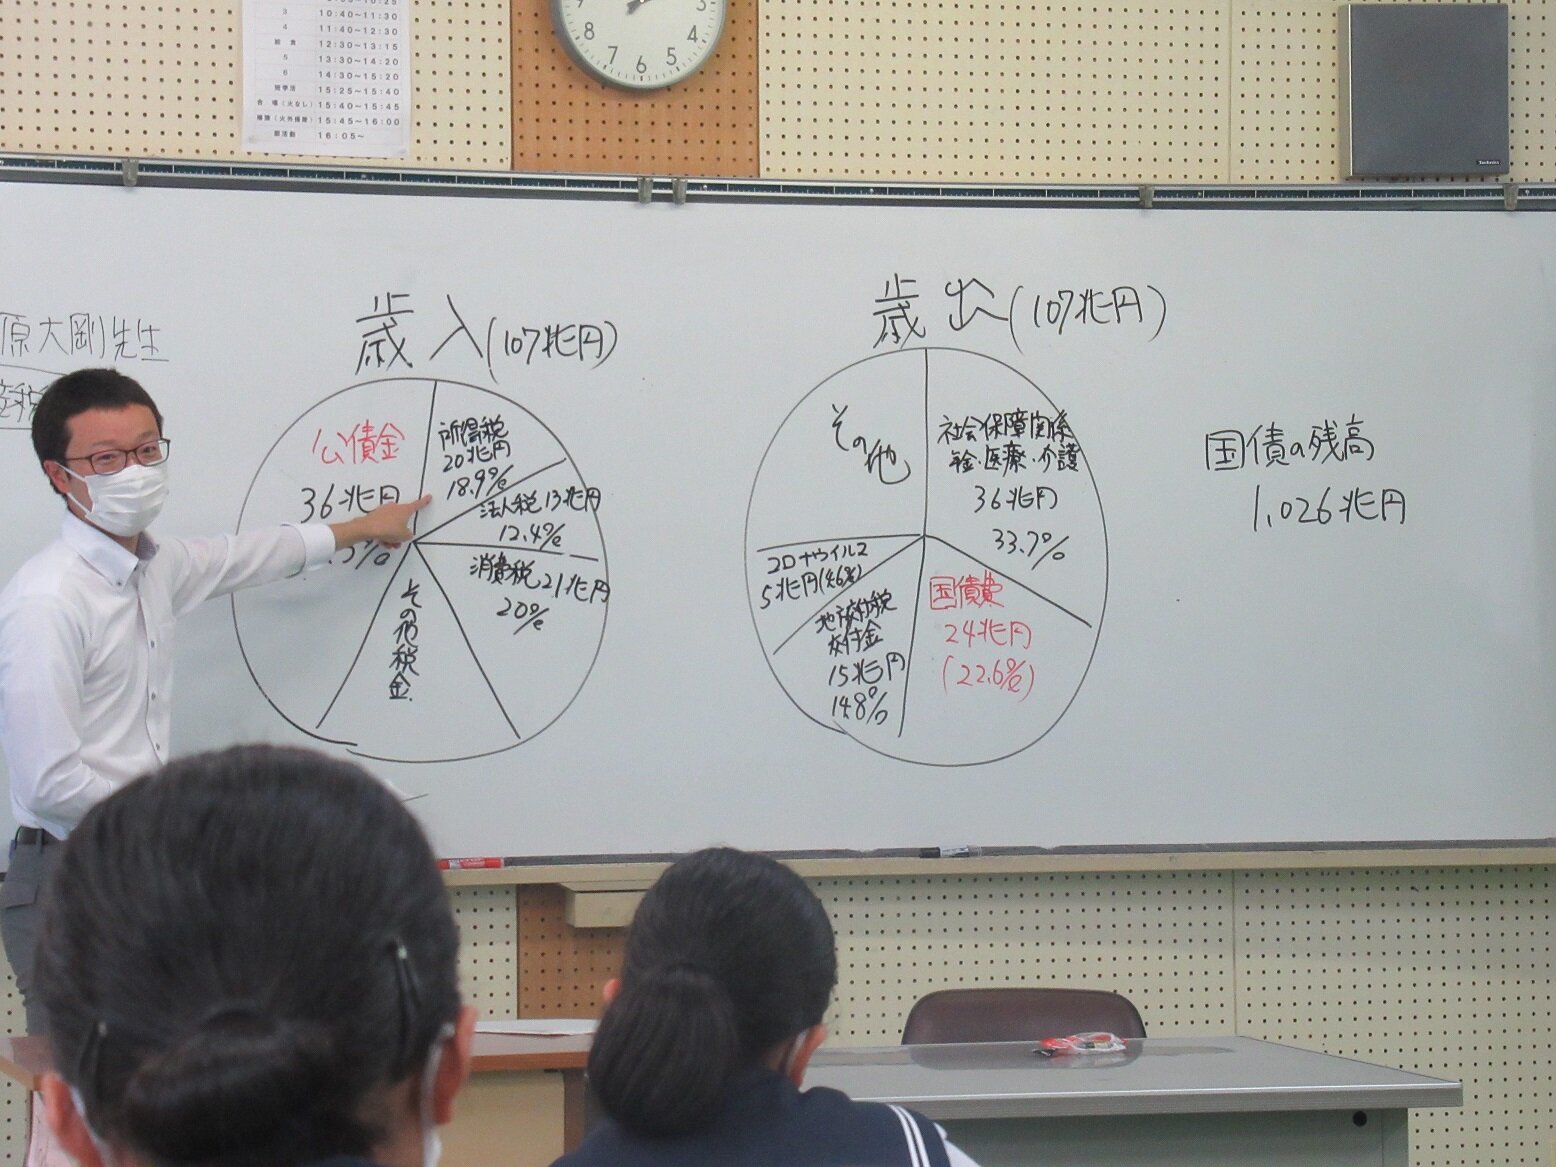 3 10:40~11:30
4 11:40~12:30
給食 12:30~13:15
5 13:30~14:20
6 14:30~15:20
短学活 15:25~15:40
合唱(火なし) 15:40~15:45
清掃(火外掃除) 15:45~16:00
部活動 16:05~
8
7
6
5
4
3
Technics
原大剛先生
税
歳入(107兆円)
公債金
36兆円
%
所得税
20兆円
18.9%
法人税 13兆円
12.4%
消費税 21兆円
20%
その他税金
歳出(107兆円)
社会保障関係
年金・医療・介護
36兆円
33.7%
国債費
24兆円
(22.6%)
地方交付税
交付金
15兆円
14.8%
コロナウイルス
5兆円(4.6%)
その他
国債の残高
1,026兆円